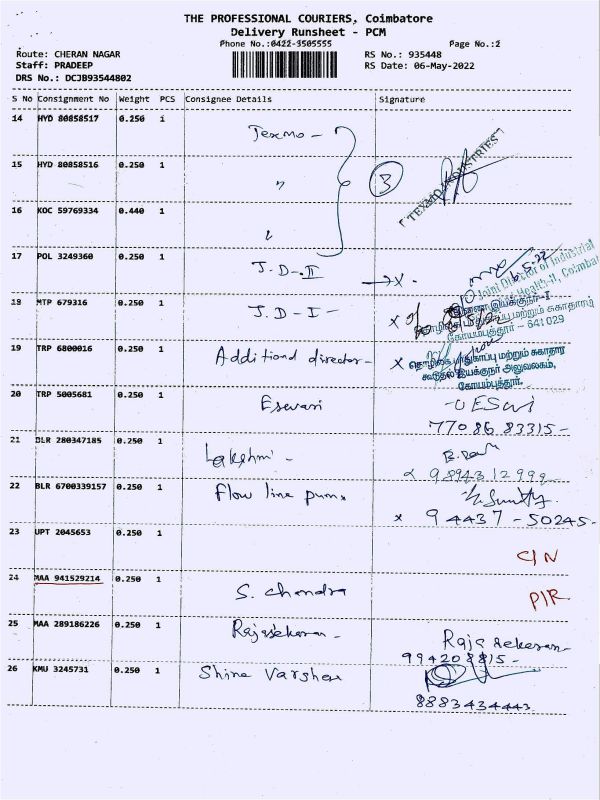 THE PROFESSIONAL COURIERS, Coimbatore
Delivery Runsheet - PCM
Phone No.:0422-3505555 Page No.:2
Route: CHERAN NAGAR RS No.: 935448
Staff: PRADEEP RS Date: 06-May-2022
DRS No.: DCJB93544802
S No Consignment No Weight PCS Consignee Details Signature
14 HYD 80858517 0.250 1 Texmo -
15 HYD 80858516 0.250 1 " 3 TEXMO INDUSTRIES
16 KOC 59769334 0.440 1 "
17 POL 3249360 0.250 1 J.D-II X Joint Director of Industrial
18 MTP 679316 0.250 1 J.D-I- X
கோயம்புத்தூர் - 641029
19 TRP 6800016 0.250 1 Additional director- X தொழிலக பாதுகாப்பு மற்றும் சுகாதார
கூடுதல் இயக்குநர் அலுவலகம்,
கோயம்புத்தூர்.
20 TRP 5005681 0.250 1 Eswari
77086 83315-
21 BLR 280347185 0.250 1 Lakshmi -
9894312999
22 BLR 6700339157 0.250 1 Flow line pums
x 94437-50245-
23 UPT 2045653 0.250 1 CIN
24 MAA 941529214 0.250 1 S. Chandra PIR
25 MAA 289186226 0.250 1 Rajasekaran - Rajasekaran
994208815-
26 KMU 3245731 0.250 1 Shine Varshen
8883434443